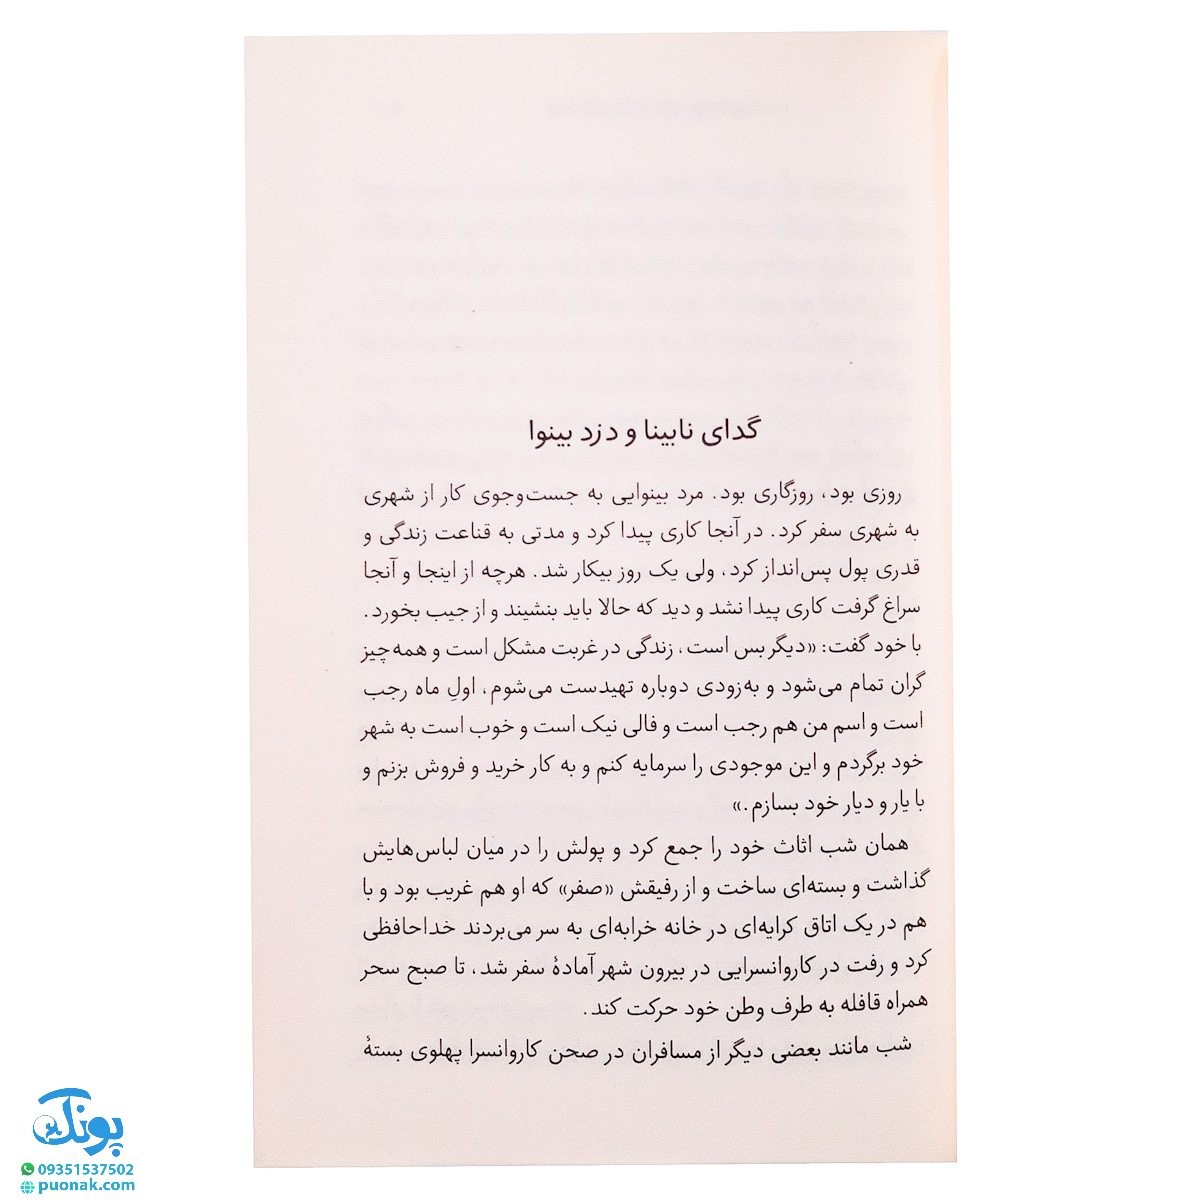 گدای نابینا و دزد بینوا
روزی بود، روزگاری بود. مرد بینوایی به جست‌وجوی کار از شهری
به شهری سفر کرد. در آنجا کاری پیدا کرد و مدتی به قناعت زندگی و
قدری پول پس‌انداز کرد، ولی یک روز بیکار شد. هرچه از اینجا و آنجا
سراغ گرفت کاری پیدا نشد و دید که حالا باید بنشیند و از جیب بخورد.
با خود گفت: «دیگر بس است، زندگی در غربت مشکل است و همه‌چیز
گران تمام می‌شود و به‌زودی دوباره تهیدست می‌شوم، اولِ ماه رجب
است و اسم من هم رجب است و فالی نیک است و خوب است به شهر
خود برگردم و این موجودی را سرمایه کنم و به کار خرید و فروش بزنم و
با یار و دیار خود بسازم.»
همان شب اثاث خود را جمع کرد و پولش را در میان لباس‌هایش
گذاشت و بسته‌ای ساخت و از رفیقش «صفر» که او هم غریب بود و با
هم در یک اتاق کرایه‌ای در خانه خرابه‌ای به سر می‌بردند خداحافظی
کرد و رفت در کاروانسرایی در بیرون شهر آمادهٔ سفر شد، تا صبح سحر
همراه قافله به طرف وطن خود حرکت کند.
شب مانند بعضی دیگر از مسافران در صحن کاروانسرا پهلوی بستهٔ
پونک
09351537502
puonak.com